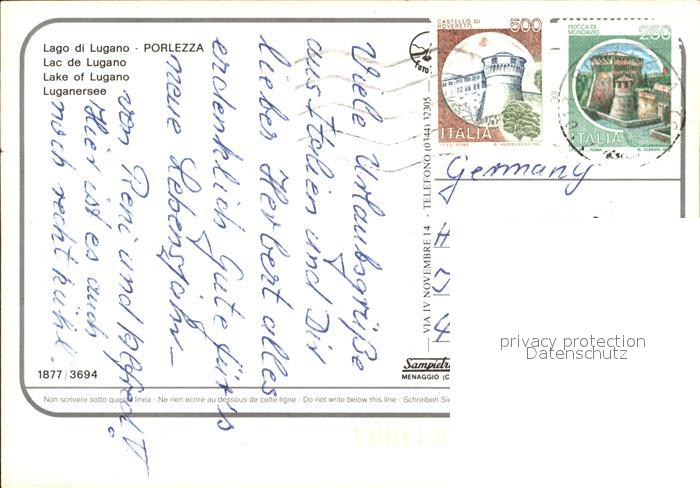 Lago di Lugano - PORLEZZA
Lac de Lugano
Lake of Lugano
Luganersee
Viele Urlaubsgrüße
aus Italien und Dir
lieber Herbert alles
erdenklich Gute für's
neue Lebensjahr
von Reni und
Hier ist es auch
noch recht kühl.
CASTELLO DI
ROVERETO
500
ITALIA
ROCCA DI
MONDAVIO
250
ITALIA
Germany
VIA IV NOVEMBRE 14 - TELEFONO (0344) 32305
privacy protection
Datenschutz
MENAGGIO (C
1877/3694
Non scrivere sotto questa linea - Ne rien ecrire au dessous de cette ligne - Do not write below this line - Schreiben Sie